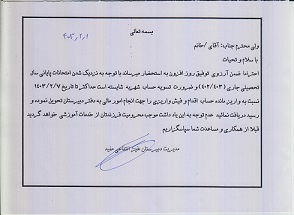 بسمه تعالی
۱۴۰۳,۲,۱
ولی محترم جناب: آقای /خانم
با سلام و تحیات
احتراما ضمن آرزوی توفیق روز افزون به استحضار میرساند با توجه به نزدیک شدن امتحانات پایانی سال
تحصیلی جاری (۴۰۲/۴۰۳) و ضرورت تسویه حساب شهریه شایسته است حداکثر تا تاریخ ۱۴۰۳/۲/۷
نسبت به واریز مانده حساب اقدام و فیش واریزی را جهت انجام امور مالی به دفتر دبیرستان تحویل نموده و
رسید دریافت نمائید عدم توجه به این یاد داشت موجب محرومیت فرزندتان از خدمات آموزشی خواهد گردید
قبلا از همکاری و مساعدت شما سپاسگزاریم
مدیریت دبیرستان غیر انتفاعی مفید